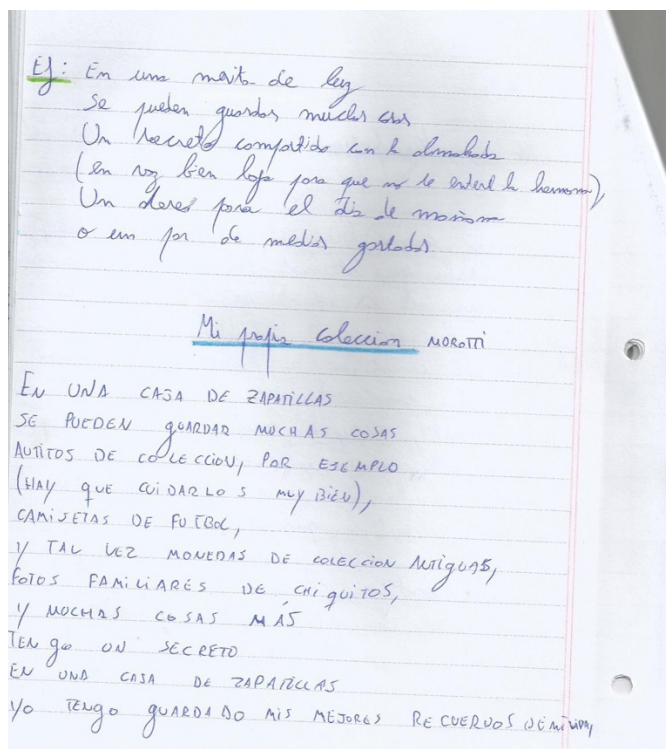 Ej: En una mesita de luz
Se pueden guardar muchas cosas
Un secreto compartido con la almohada
(en voz bien baja para que no se entere la hermana),
Un deseo para el día de mañana
o un par de medias gastadas
Mi propia coleccion MOROTTI
EN UNA CAJA DE ZAPATILLAS
SE PUEDEN GUARDAR MUCHAS COSAS
AUTITOS DE COLECCION, POR EJEMPLO
(HAY QUE CUIDARLOS MUY BIEN),
CAMISETAS DE FUTBOL,
Y TAL VEZ MONEDAS DE COLECCION ANTIGUAS,
FOTOS FAMILIARES DE CHIQUITOS,
Y MUCHAS COSAS MÁS
TENGO UN SECRETO
EN UNA CAJA DE ZAPATILLAS
YO TENGO GUARDADO MIS MEJORES RECUERDOS DE MI VIDA,